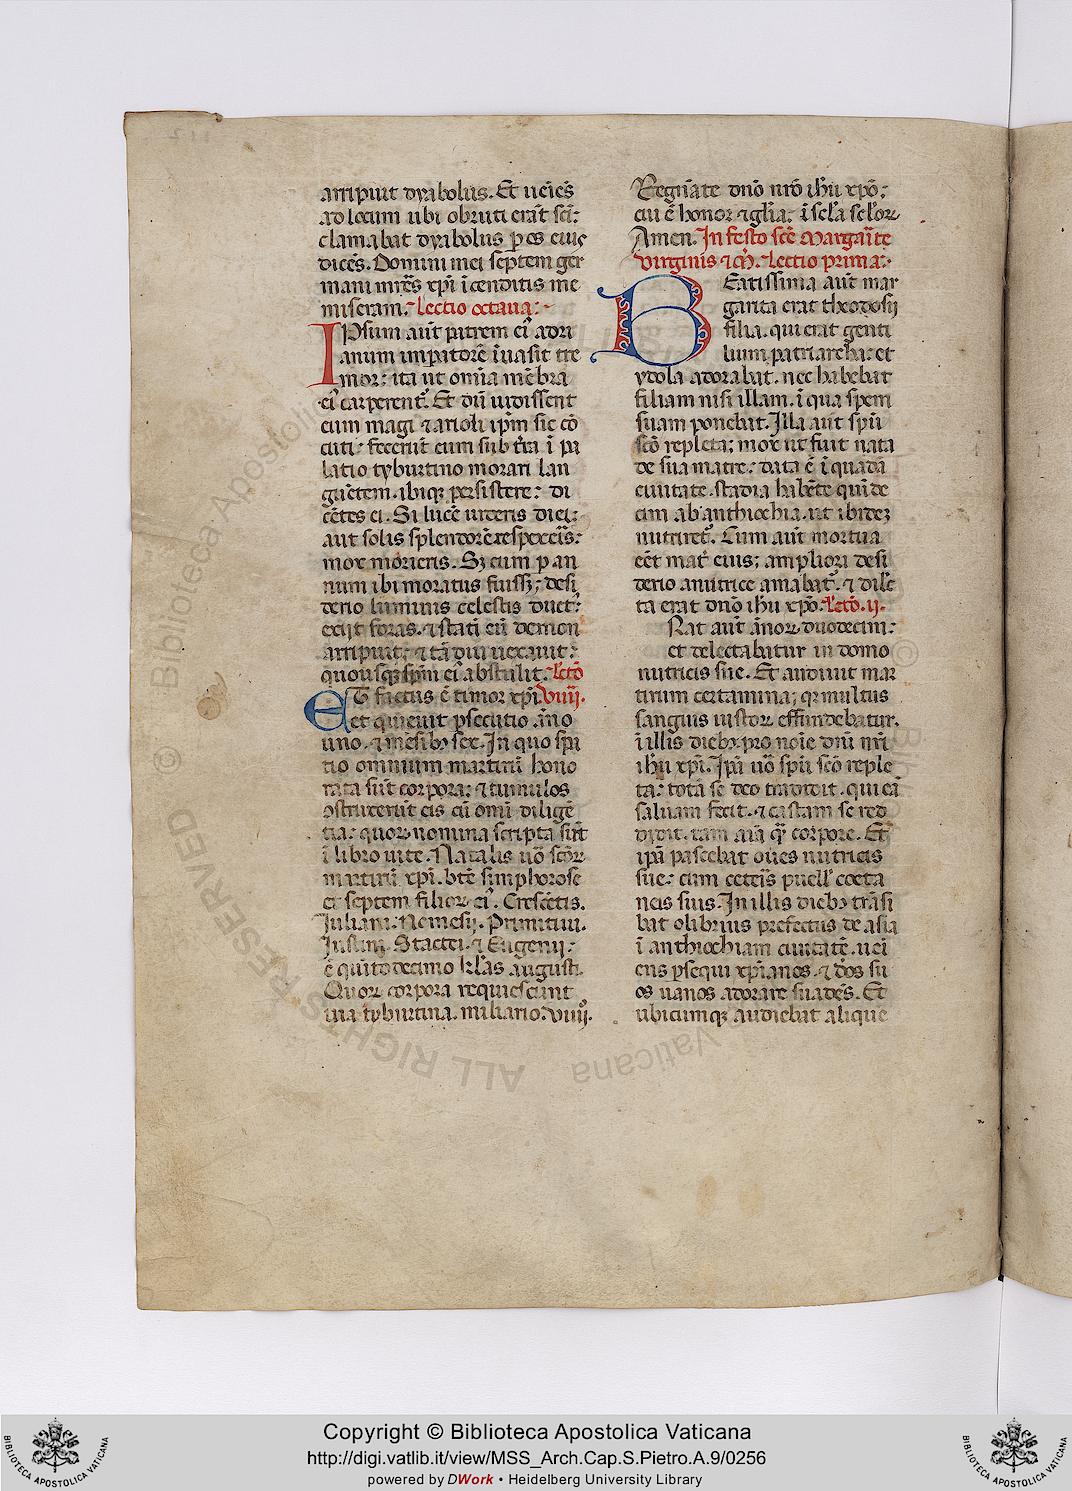 arripuit dyabolus. Et ueiẽs
ad locum ubi obruti erãt sci:
clamabat dyabolus p os eius
dicẽs. Domini mei septem ger
mani mrẽs xpi ĩcenditis me
miseram. Lectio octaua:
IPsum aut patrem ei adri
anum impatorẽ ĩuasit tre
mor: ita ut omĩa mẽbra
ei carperent. Et dũ uidissent
eum magi ⁊ arioli ipm sic cõ
cuti: fecerũt eum sub tra ĩ pa
latio tyburtino morari lan
guẽtem. ibiqz persistere: di
cẽtes ei. Si lucẽ uideris diei:
aut solis splendorẽ respexeis:
mox morieris. Sz cum p an
num ibi moratus fuiss; desi
derio luminis celestis duct:
exijt foras. ⁊ stati eũ demon
arripuit; ⁊ tã diu uexauit:
quousqz spm ei abstulit. Lctõ
ET factus ẽ timor xpi viiii.
et quieuit psecutio. ĩno
uno. ⁊ mesibz sex. In quo spa
tio omnium martirũ hono
rata sũt corpora: ⁊ tumulos
ostruxerũt eis cũ omi diligẽ
tia: quoꝝ nomina scripta sũt
ĩ libro uite. Natalis uõ scõꝝ
martirũ xpi. btẽ simphorose
et septem filioꝝ ei. Crescẽtis.
Juliani. Nemesij. Primitiui.
Justini. Stactei. ⁊ Eugenij:
ẽ quĩtodecimo klas augusti.
Quoꝝ corpora requiescunt
uia tyburtina. miliario. viiii.
Regnãte dnõ nrõ ihu xpõ:
cui ẽ honor ⁊ glia. ĩ scla scloꝝ
Amen. In festo scẽ Margarite
virginis ⁊ m. Lectio prima:
BEatissima aut mar
garita erat theodosij
filia. qui erat genti
lium patriarcha: et
ydola adorabat. nec habebat
filiam nisi illam. ĩ qua spem
suam ponebat. Illa aut spũ
scõ repleta; mox ut fuit nata
de sua matre: data ẽ ĩ quadã
ciuitate. stadia habẽte quĩde
cim ab anthiochia. ut ibidez
nutriret. Cum aut mortua
eẽt mat eius; ampliori desi
derio anutrice amabat. ⁊ dilc
ta erat dnõ ihu xpõ. Lctõ. ii.
Rat aut ãnoꝝ duodecim:
et delectabatur in domo
nutricis sue. Et audiuit mar
tirum certamina; qz multus
sanguis iustoꝝ effundebatur.
ĩ illis diebz. pro noie dni nri
ihu xpi. Ipa uõ spũ scõ reple
ta: totã se deo tradidit. qui eã
saluam fecit. ⁊ castam se red
didit. tam aia qz corpore. Et
ipa pascebat oues nutricis
sue: cum ceteis puell coeta
neis suis. In illis diebz trãsi
bat olibrius prefectus de asia
ĩ anthiochiam ciuitatẽ. uei
ens psequi xpianos. ⁊ dõs su
os uanos adorare suadẽs. Et
ubicumqz audiebat alique
Copyright © Biblioteca Apostolica Vaticana
http://digi.vatlib.it/view/MSS_Arch.Cap.S.Pietro.A.9/0256
powered by DWork • Heidelberg University Library
BIBLIOTECA APOSTOLICA VATICANA
BIBLIOTECA APOSTOLICA VATICANA
© Biblioteca Apostolica Vaticana ALL RIGHTS RESERVED